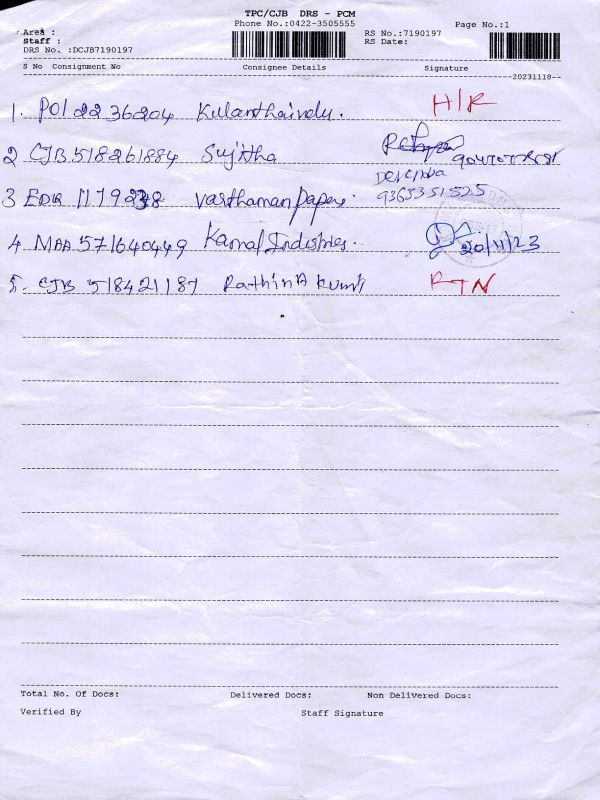 TPC/CJB DRS - PCM
Phone No.:0422-3505555 Page No.:1
Area :
Staff :
DRS No. :DCJB7190197
RS No.:7190197
RS Date:
S No Consignment No Consignee Details Signature
20231118
1. POI 2236204 Kulanthaivelu. H/R
2 CJB 518261884 Sujitha
3 EDR Varthaman Papers. Devendra 9365351525
4. MAA 571640449 Kamal Industries. 20/11/23
5. CJB 518421187 Rathina kumar RTN
Total No. Of Docs: Delivered Docs: Non Delivered Docs:
Verified By Staff Signature